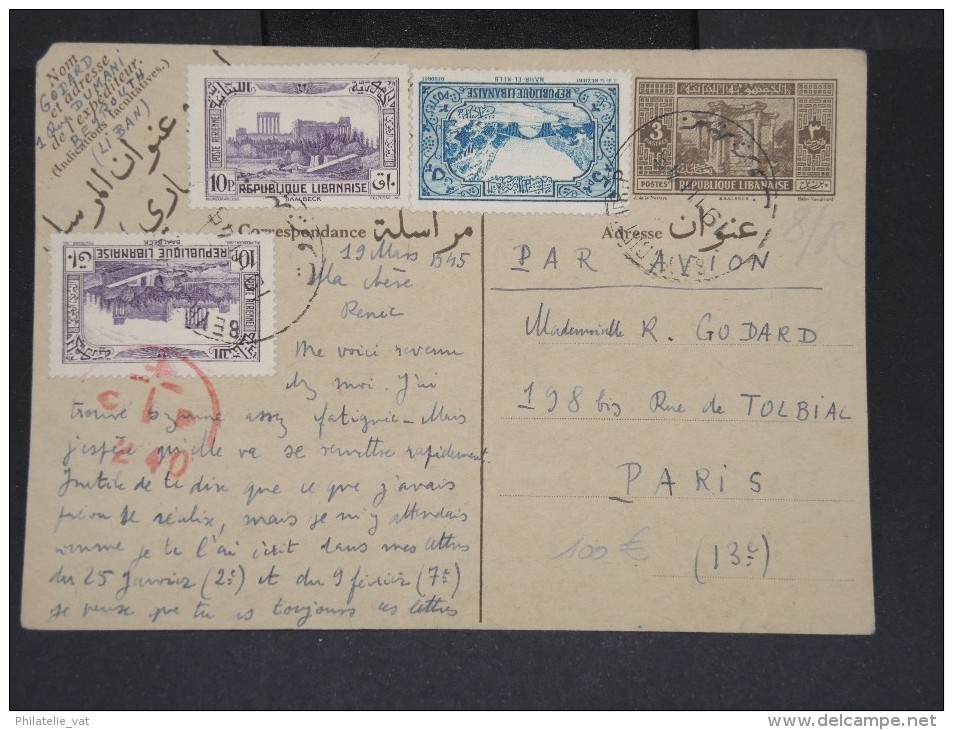 Nom
et adresse
de l'expéditeur.
(Indications facultatives.)
GODARD
DUMANI
BEYROUTH
(LIBAN)
عنوان المرسل
POSTE AERIENNE
10P.
REPUBLIQUE LIBANAISE
BAALBECK
REPUBLIQUE LIBANAISE
NAHR-EL-KELB
3
POSTES
REPUBLIQUE LIBANAISE
BAALBECK
Correspondance مراسلة
Adresse عنوان
10P.
REPUBLIQUE LIBANAISE
BAALBECK
POSTE AERIENNE
19 Mars 1945
Ma chère
Renée
Me voici revenu
chez moi. J'ai
trouvé Suzanne assez fatiguée – Mais
j'espère qu'elle va se remettre rapidement.
Inutile de te dire que ce que j'avais
prévu se réalise, mais je m'y attendais
comme je te l'ai écrit dans mes lettres
du 25 Janvier (2e) et du 9 février (7e)
je pense que tu as toujours ces lettres
C I P
240
PAR AVION
Mademoiselle R. GODARD
198 bis Rue de TOLBIAC
PARIS
(13e)
100€
Philatelie_vat
http://www.delcampe.net